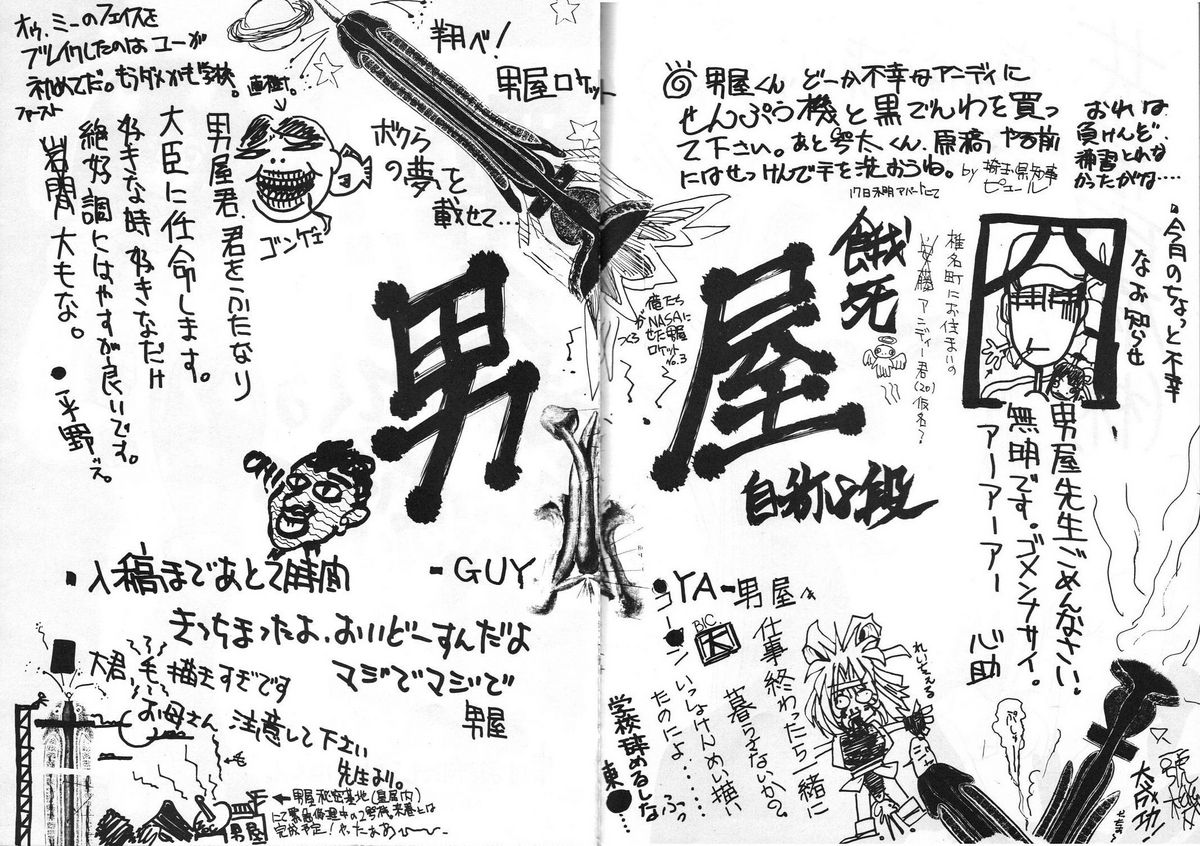 オゥ、ミーのフェイスを
ブレイクしたのは ユーが
初めてだ。もうダメかも学校。
ファースト
直樹→
ゴンゲェ
男屋君、君をふたなり
大臣に任命します。
好きな時好きなだけ
絶好調にはやすが良いです。
岩間大もな。
●平野ゞ
翔べ!
男屋ロケット
ボクら
の夢を
載せて…
◎男屋くん どーか不幸なアンディに
せんぷう機と黒でんわを買っ
て下さい。あと 太くん、原稿やる前
にはせっけんで手を洗おうね。
by 埼玉県知事
ピュール
17日未明 アパートにて
おれは
負けんど、
練習とれな
かったがな…
餓死
椎名町にお住まいの
安藤アンディー君(20)仮名?
•今月のちょっと不幸
なお知らせ
俺たち
がNASAに
せた男屋
ロケット
No.3
男屋
自称 段
男屋先生ごめんなさい。
無明です。ゴメンナサイ。
アーアーアー
心助
・入稿まであと2時間
きっちまったよ、おいどーすんだよ
マジでマジで
男屋
-GUY
大君、毛描きすぎです
お母さん注意して下さい
先生より。
←男屋秘密基地(皇居内)
にて 修理中の2号機 来春には
完成予定!やったぁあ〜
男屋
●YA-男屋
仕事終わったら一緒に
暮らさないか?
BIC
いっしょけんめい描い
たのによ……ふっ
学校辞めるしな
東●…
れいちぇる
号機
大成功!